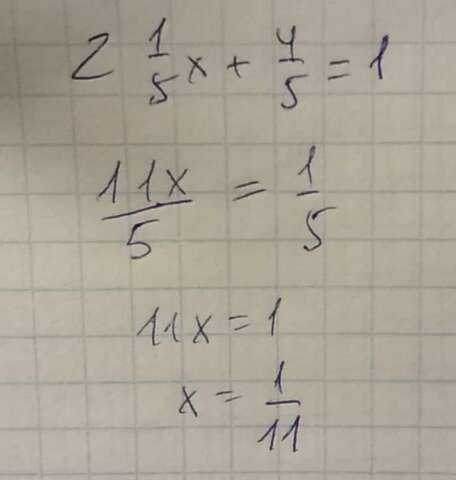 2 1/5 x + 4/5 = 1
11x/5 = 1/5
11x = 1
x = 1/11